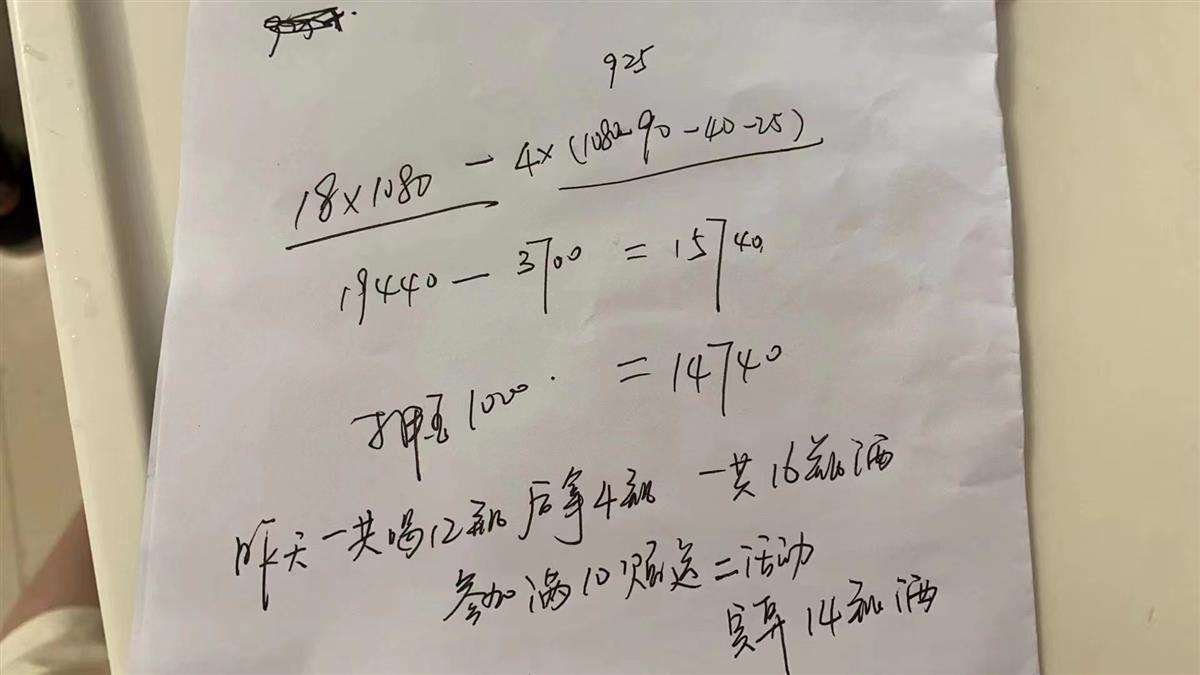 925
18×1080 - 4×(1080-90-40-25)
19440 - 3700 = 15740
押金1000. = 14740
昨天一共喝12瓶 后拿4瓶 一共16瓶酒
参加满10瓶送二活动
实算14瓶酒